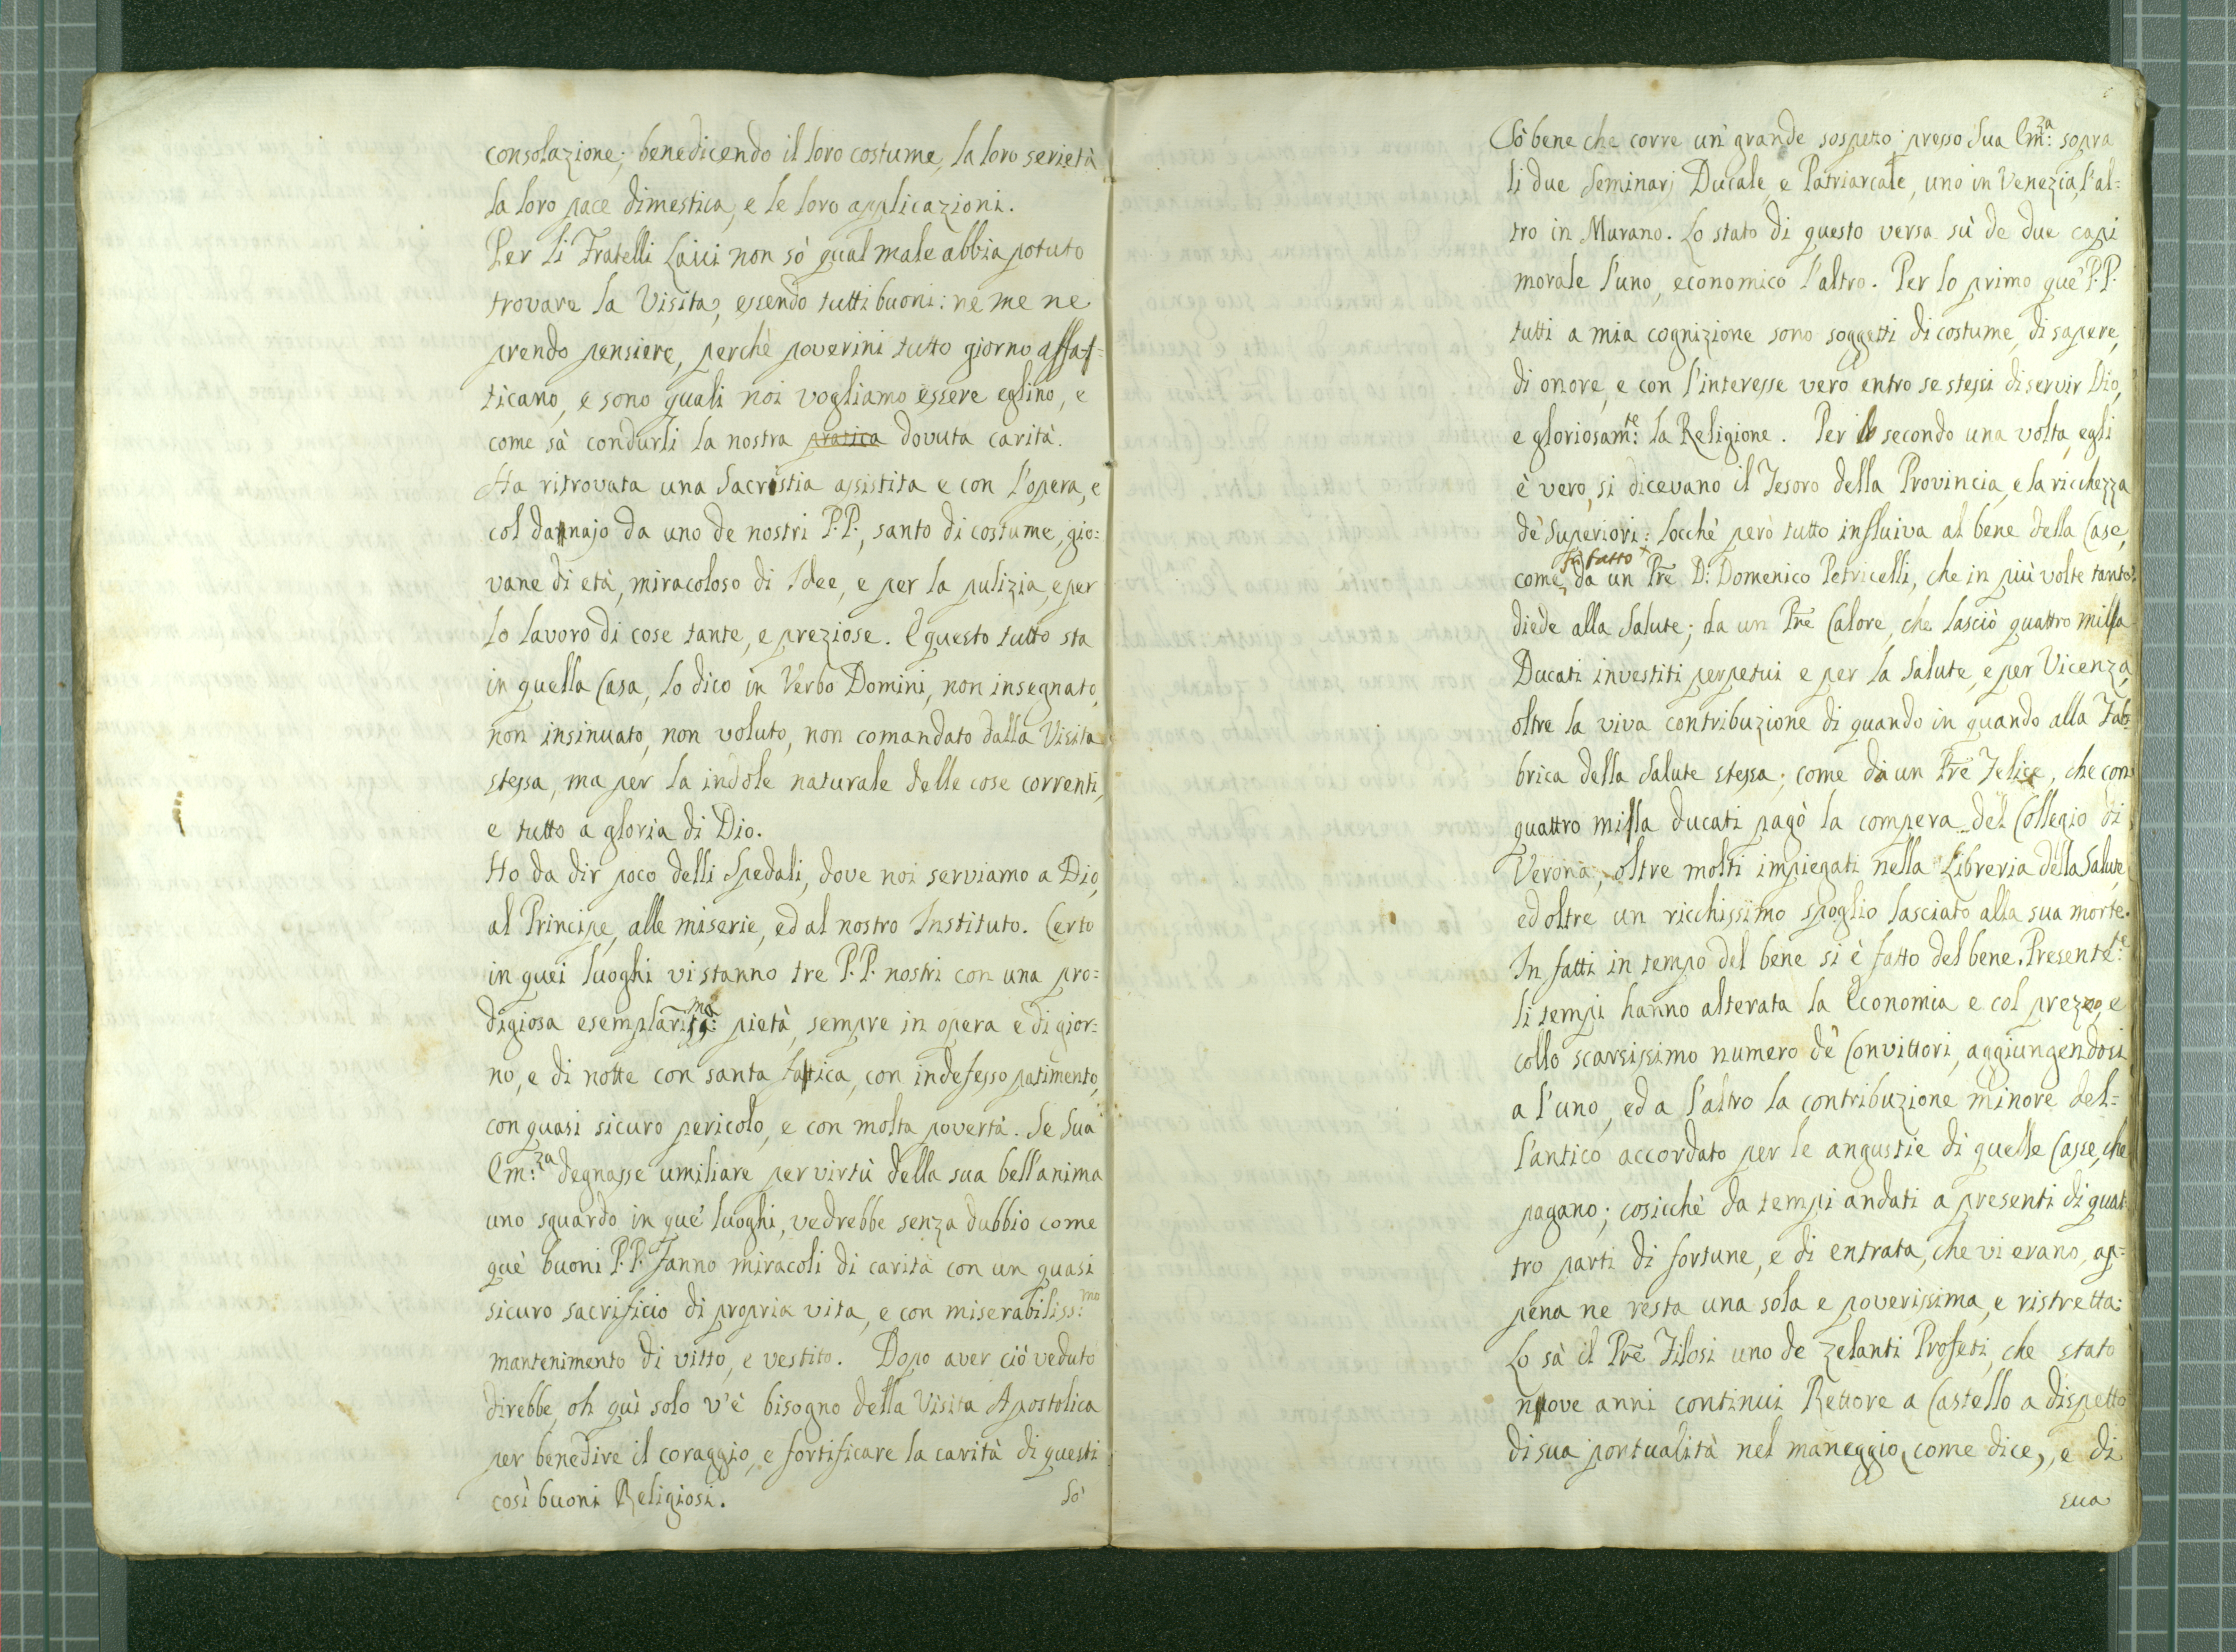 consolazione; benedicendo il loro costume, la loro serietà
la loro pace dimestica, e le loro applicazioni.
Per li Fratelli Laici non sò qual male abbia potuto
trovare la Visita, essendo tutti buoni: ne me ne
prendo pensiere, perchè poverini tutto giorno affat=
ticano, e sono quali noi vogliamo essere eglino, e
come sà condurli la nostra pratica dovuta carità.
Ha ritrovata una Sacristia assistita e con l'opera, e
col dannajo da uno de nostri P.P., santo di costume, gio:
vane di età, miracoloso di Idee, e per la pulizia, e per
lo lavoro di cose tante, e preziose. E questo tutto sta
in quella Casa, lo dico in Verbo Domini, non insegnato,
non insinuato, non voluto, non comandato dalla Visita
stessa, ma per la indole naturale delle cose correnti,
e tutto a gloria di Dio.
Ho da dir poco delli Spedali, dove noi serviamo a Dio,
al Principe, alle miserie, ed al nostro Instituto. Certo
in quei luoghi vi stanno tre P.P. nostri con una pro=
digiosa esemplariss:ma pietà, sempre in opera e di gior=
no, e di notte con santa fattica, con indefesso patimento,
con quasi sicuro pericolo, e con molta povertà. Se Sua
Em:za degnasse umiliare per virtù della sua bell'anima
uno sguardo in que' luoghi, vedrebbe senza dubbio come
què buoni P.P. fanno miracoli di carità con un quasi
sicuro sacrificio di propria vita, e con miserabiliss:mo
mantenimento di vitto, e vestito. Dopo aver ciò veduto
direbbe, oh quì solo v'è bisogno della Visita Apostolica
per benedire il coraggio, e fortificare la carità di questi
così buoni Religiosi.
Sò
Sò bene che corre un grande sospetto presso Sua Em:za sopra
li due Seminarj Ducale, e Patriarcale, uno in Venezia, l'al=
tro in Murano. Lo stato di questo versa sù de due capi
morale l'uno, economico l'altro. Per lo primo què P.P.
tutti a mia cognizione sono soggetti di costume, di sapere,
di onore, e con l'interesse vero entro se stessi di servir Dio,
e gloriosam:te la Religione. Per lo secondo una volta, egli
è vero, si dicevano il Tesoro della Provincia, e la ricchezza
dè Superiori: locchè però tutto influiva al bene della Case,
fù fatto
come da un Pre D: Domenico Petricelli, che in più volte tanto
diède alla Salute; da un Pre Calore, che lasciò quattro milla
Ducati investiti perpetui e per la Salute, e per Vicenza,
oltre la viva contribuzione di quando in quando alla Fab=
brica della Salute stessa; come da un Pre Felice, che con
quattro milla ducati pagò la compera del Collegio di
Verona, oltre molti impiegati nella Libreria della Salute,
ed oltre un ricchissimo spoglio lasciato alla sua morte.
In fatti in tempo del bene si è fatto del bene. Presente:te
li tempi hanno alterata la Economia e col prezzo, e
collo scarsissimo numero dè Convittori, aggiungendosi
a l'uno, ed a l'altro la contribuzione minore del=
l'antico accordato per le angustie di quelle Casse, che
pagano; cosicchè da tempi andati a presenti di quat
tro parti di fortune, e di entrata, che vi erano, ap=
pena ne resta una sola e poverissima, e ristretta:
Lo sà il Pre Filosi uno de zelanti Profeti, che stato
nuove anni continui Rettore a Castello a dispetto
di sua pontualità nel maneggio, come dice, e di
sua